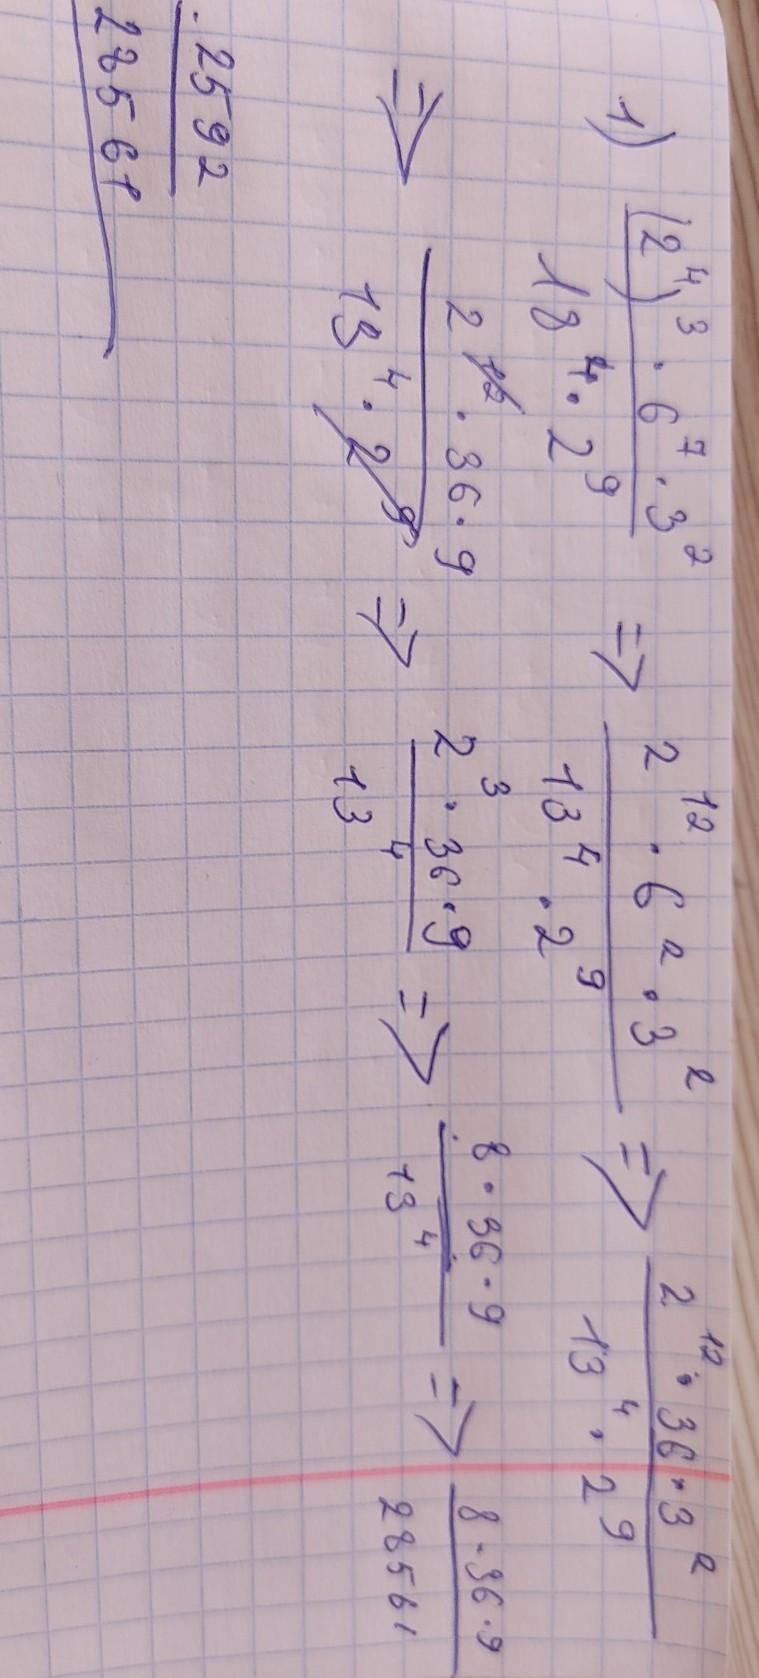 1) (2⁴)³ · 6⁷ · 3² / 18⁴ · 2⁹ => 2¹² · 6² · 3² / 13⁴ · 2⁹ => 2¹² · 36 · 3² / 13⁴ · 2⁹
=> 2¹² · 36 · 9 / 13⁴ · 2⁹ => 2³ · 36 · 9 / 13⁴ => 8 · 36 · 9 / 13⁴ => 8 · 36 · 9 / 28561
2592 / 28561